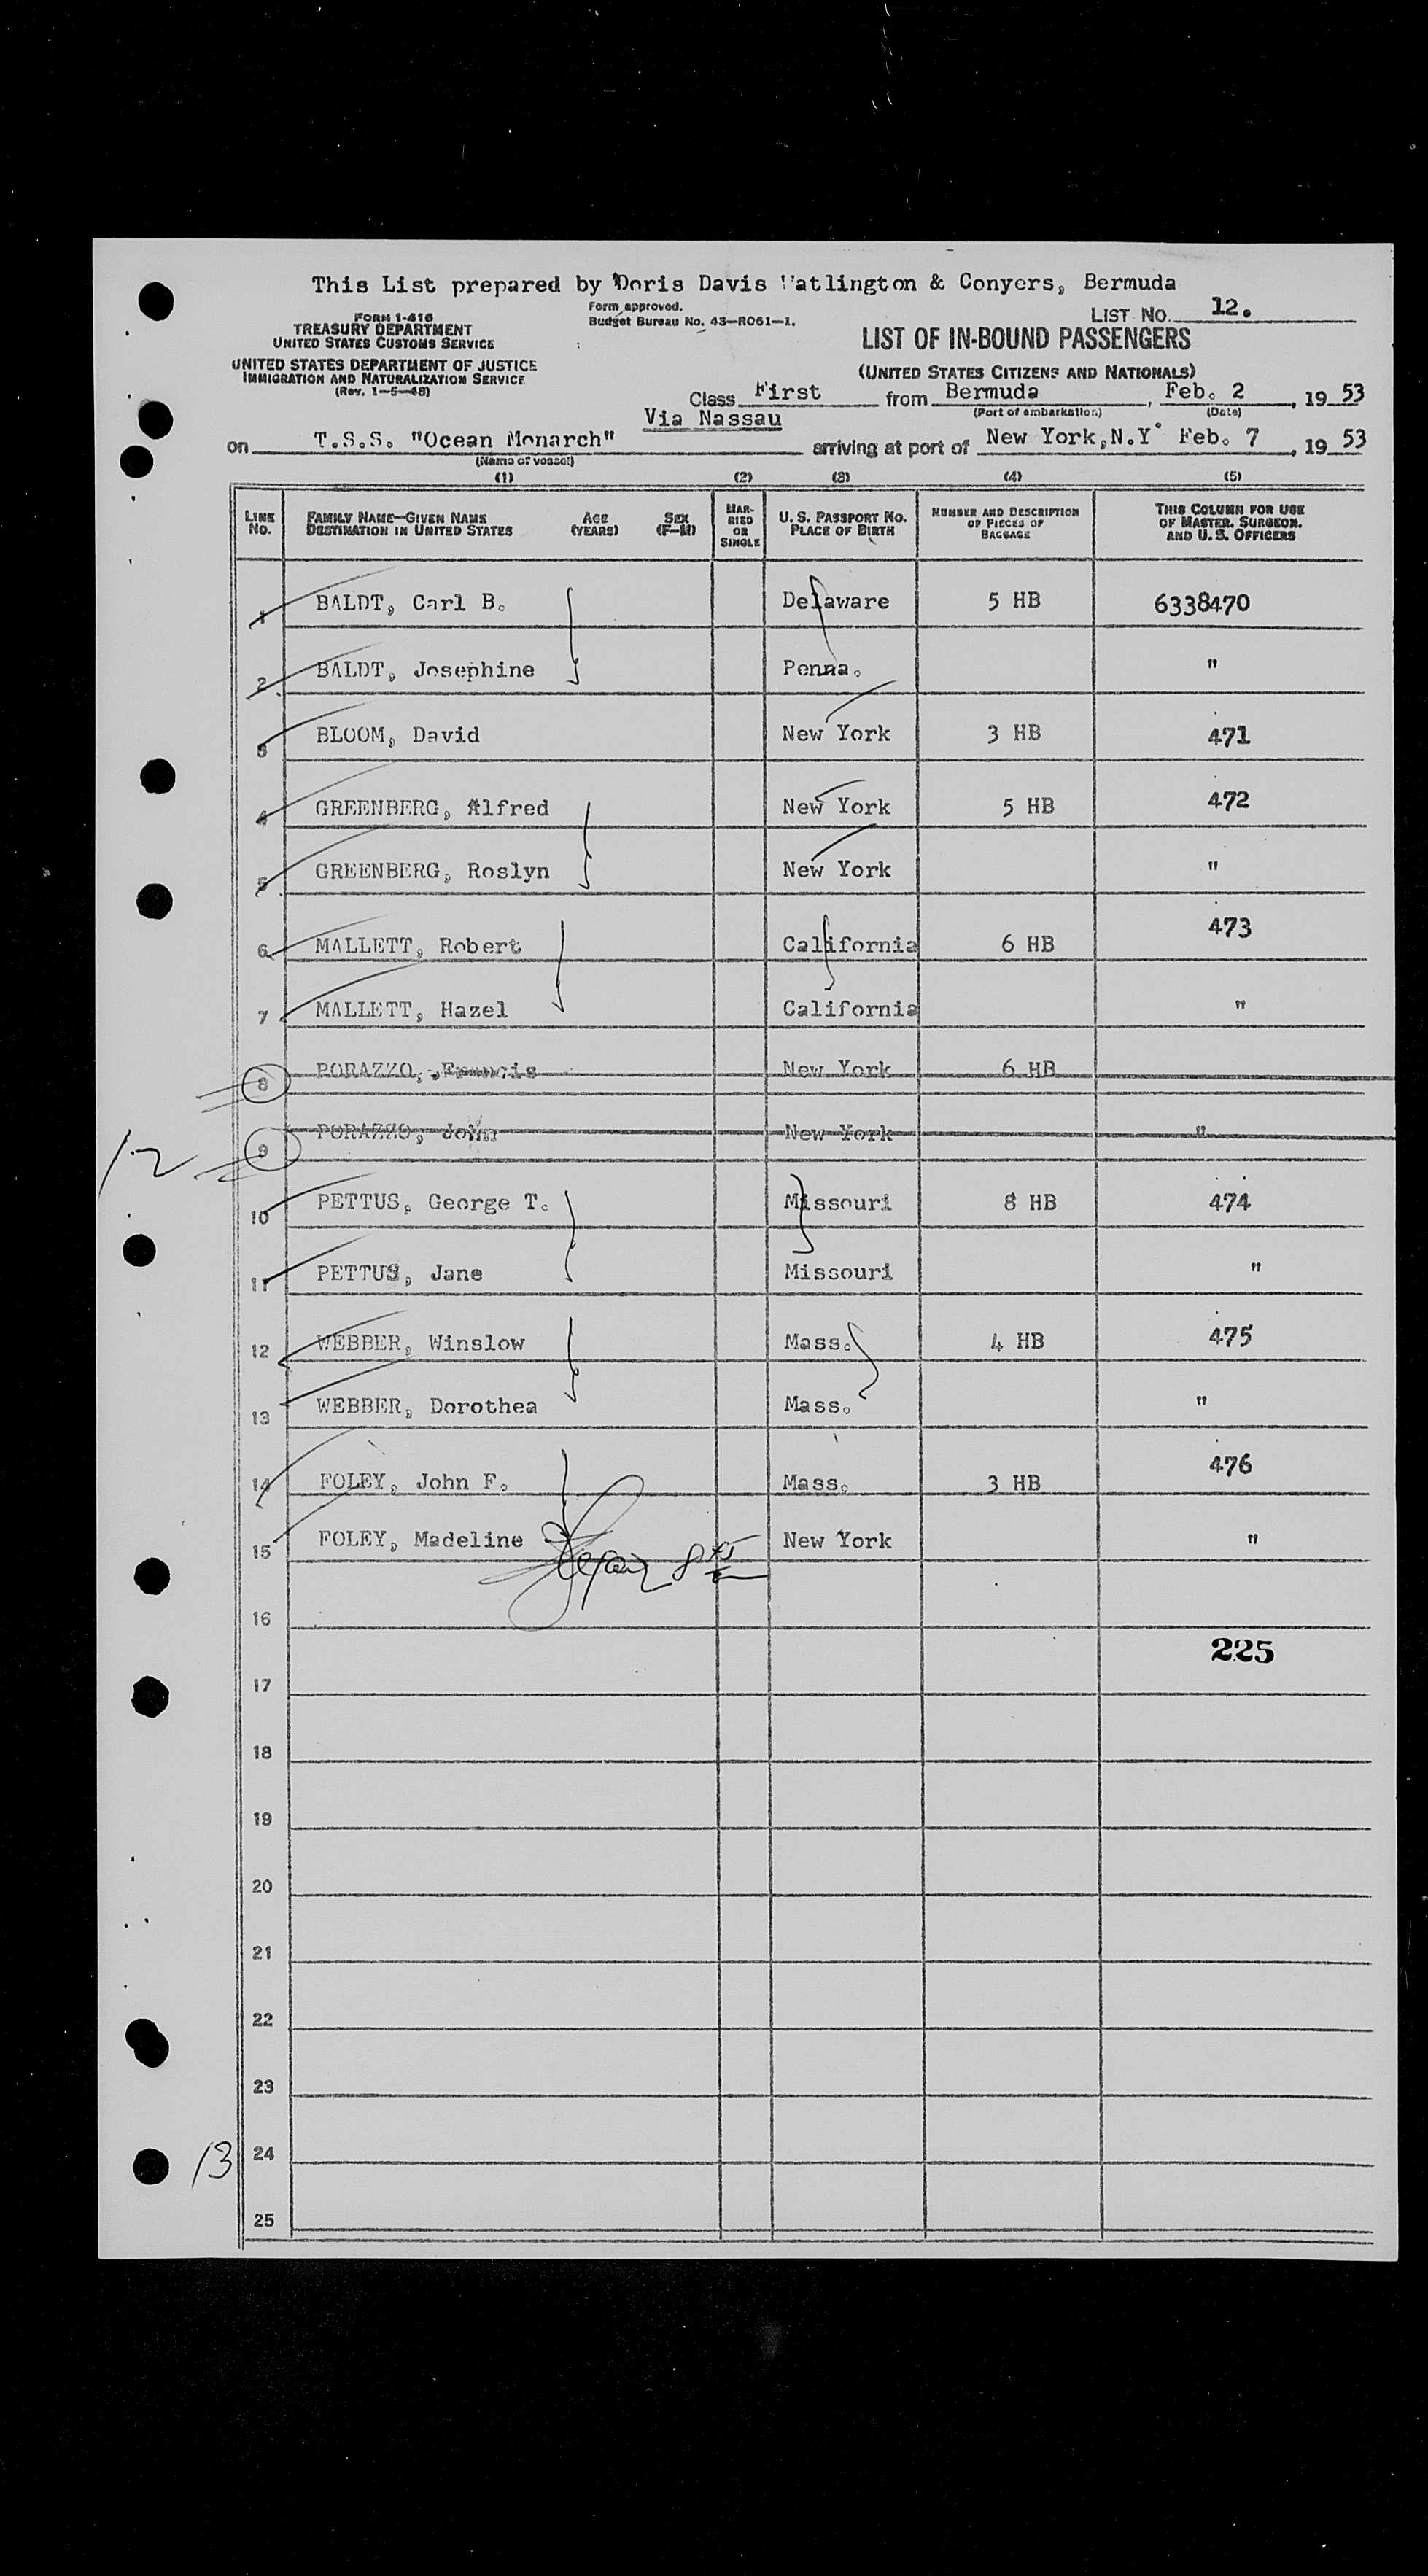 This List prepared by Doris Davis Watlington & Conyers, Bermuda
Form approved.
Budget Bureau No. 43—R061—1.
LIST NO. 12.
FORM I-416
TREASURY DEPARTMENT
UNITED STATES CUSTOMS SERVICE
UNITED STATES DEPARTMENT OF JUSTICE
IMMIGRATION AND NATURALIZATION SERVICE
(Rev. 1—5—48)
LIST OF IN-BOUND PASSENGERS
(UNITED STATES CITIZENS AND NATIONALS)
Class First from Bermuda, Feb. 2, 19 53
(Port of embarkation) (Date)
Via Nassau
on T.S.S. "Ocean Monarch" arriving at port of New York, N.Y. Feb. 7, 19 53
(Name of vessel)
(1) (2) (3) (4) (5)
LINE No. FAMILY NAME—GIVEN NAME DESTINATION IN UNITED STATES AGE (YEARS) SEX (F—M) MARRIED OR SINGLE U. S. PASSPORT NO. PLACE OF BIRTH NUMBER AND DESCRIPTION OF PIECES OF BAGGAGE THIS COLUMN FOR USE OF MASTER, SURGEON, AND U. S. OFFICERS
1 BALDT, Carl B. Delaware 5 HB 6338470
2 BALDT, Josephine Penna. "
3 BLOOM, David New York 3 HB 471
4 GREENBERG, Alfred New York 5 HB 472
5 GREENBERG, Roslyn New York "
6 MALLETT, Robert California 6 HB 473
7 MALLETT, Hazel California "
8 PORAZZO, Francis New York 6 HB
9 PORAZZO, John New York "
12
10 PETTUS, George T. Missouri 8 HB 474
11 PETTUS, Jane Missouri "
12 WEBBER, Winslow Mass. 4 HB 475
13 WEBBER, Dorothea Mass. "
14 FOLEY, John F. Mass. 3 HB 476
15 FOLEY, Madeline New York "
16
225
17
18
19
20
21
22
23
13 24
25